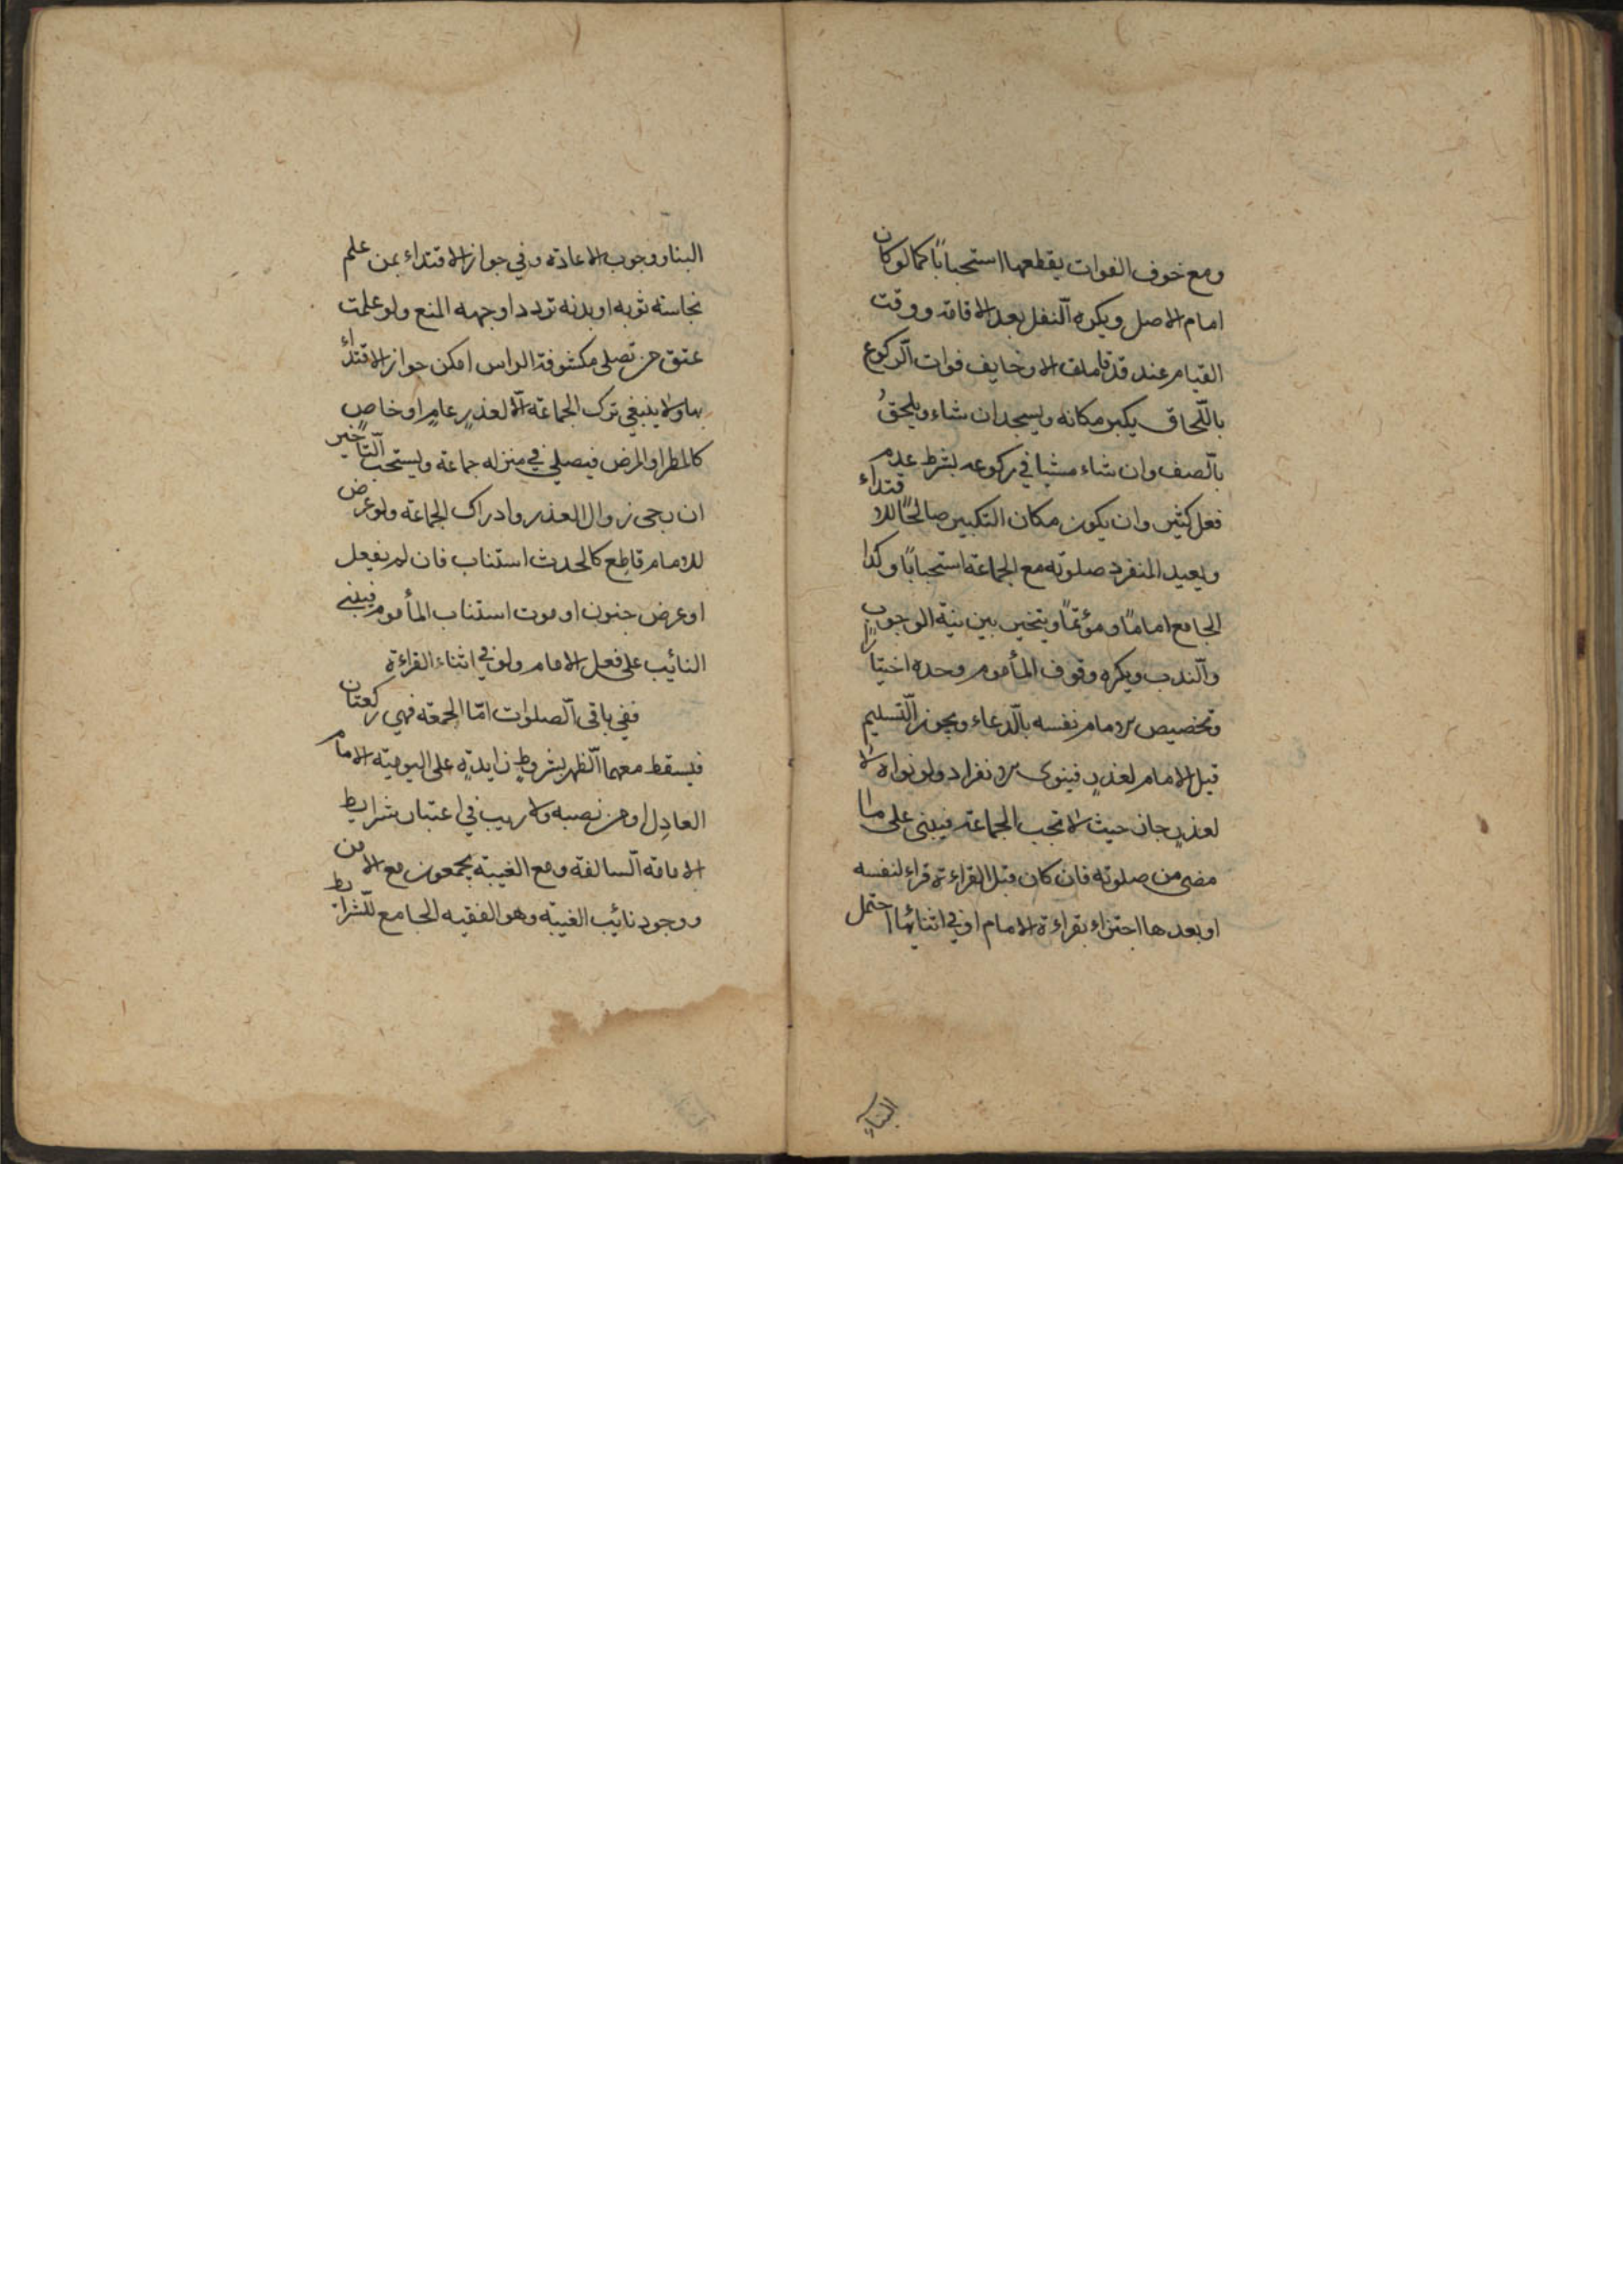 ومع خوف الفوات يقطعها استحبابًا كما لو كان
امام الاصل ويكره النّفل بعد الاقامة ووقت
القيام عند قد قامت الصلوة وخايف فوات الرّكوع
باللّحاق يكبر مكانه ويسجد ان شاء ويلحقُ
بالّصف وان شاء مشيا في ركوعه بشرط عدم
فعل كثير وان يكون مكان التكبير صالحًا للاقتداء
ويعيد المنفرد صلوته مع الجماعة استحبابًا وكذا
الجامع امامًا ومؤتمًا ويتخير بين نية الوجوب
والنّدب ويكره وقوف المأموم وحده اختيارًا
وتخصيص الامام نفسه بالدّعاء ويجوز التّسليم
قبل الامام لعذرٍ فينوى الانفراد ولو نواه لا
لعذرٍ جاز حيث لا تجب الجماعة فيبنى على ما
مضى من صلوته فان كان قبل القراءة قراء لنفسه
او بعدها اجتزاء بقراءة الامام او في اثنائها احتمل
البناء
البنا ووجوب الاعادة وفي جواز الاقتداء بمن علم
نجاسة ثوبه او بدنه تردد اوجهه المنع ولو علمت
عتق من تصلى مكشوفة الراس امكن جواز الاقتداء
بها ولا ينبغي ترك الجماعة الّا لعذرٍ عامٍ او خاصٍ
كالمطر او المرض فيصلي في منزله جماعة ويستحب التّاخير
ان رجى زوال العذر وادراك الجماعة ولو عرض
للامام قاطع كالحدث استناب فان لم يفعل
او عرض جنون او موت استناب المأموم فيبني
النائب على فعل الامام ولو في اثناء القراءة
ففي باقى الّصلوات امّا الجمعة فهي ركعتان
فيسقط معهما الّظهر بشروطٍ زايدةٍ على اليومية الامام
العادل او من نصبه ولا ريب في اعتبار شرايط
الامامة السّالفة ومع الغيبة يجمعون مع الامن
ووجود نائب الغيبة وهو الفقيه الجامع للشّرايط